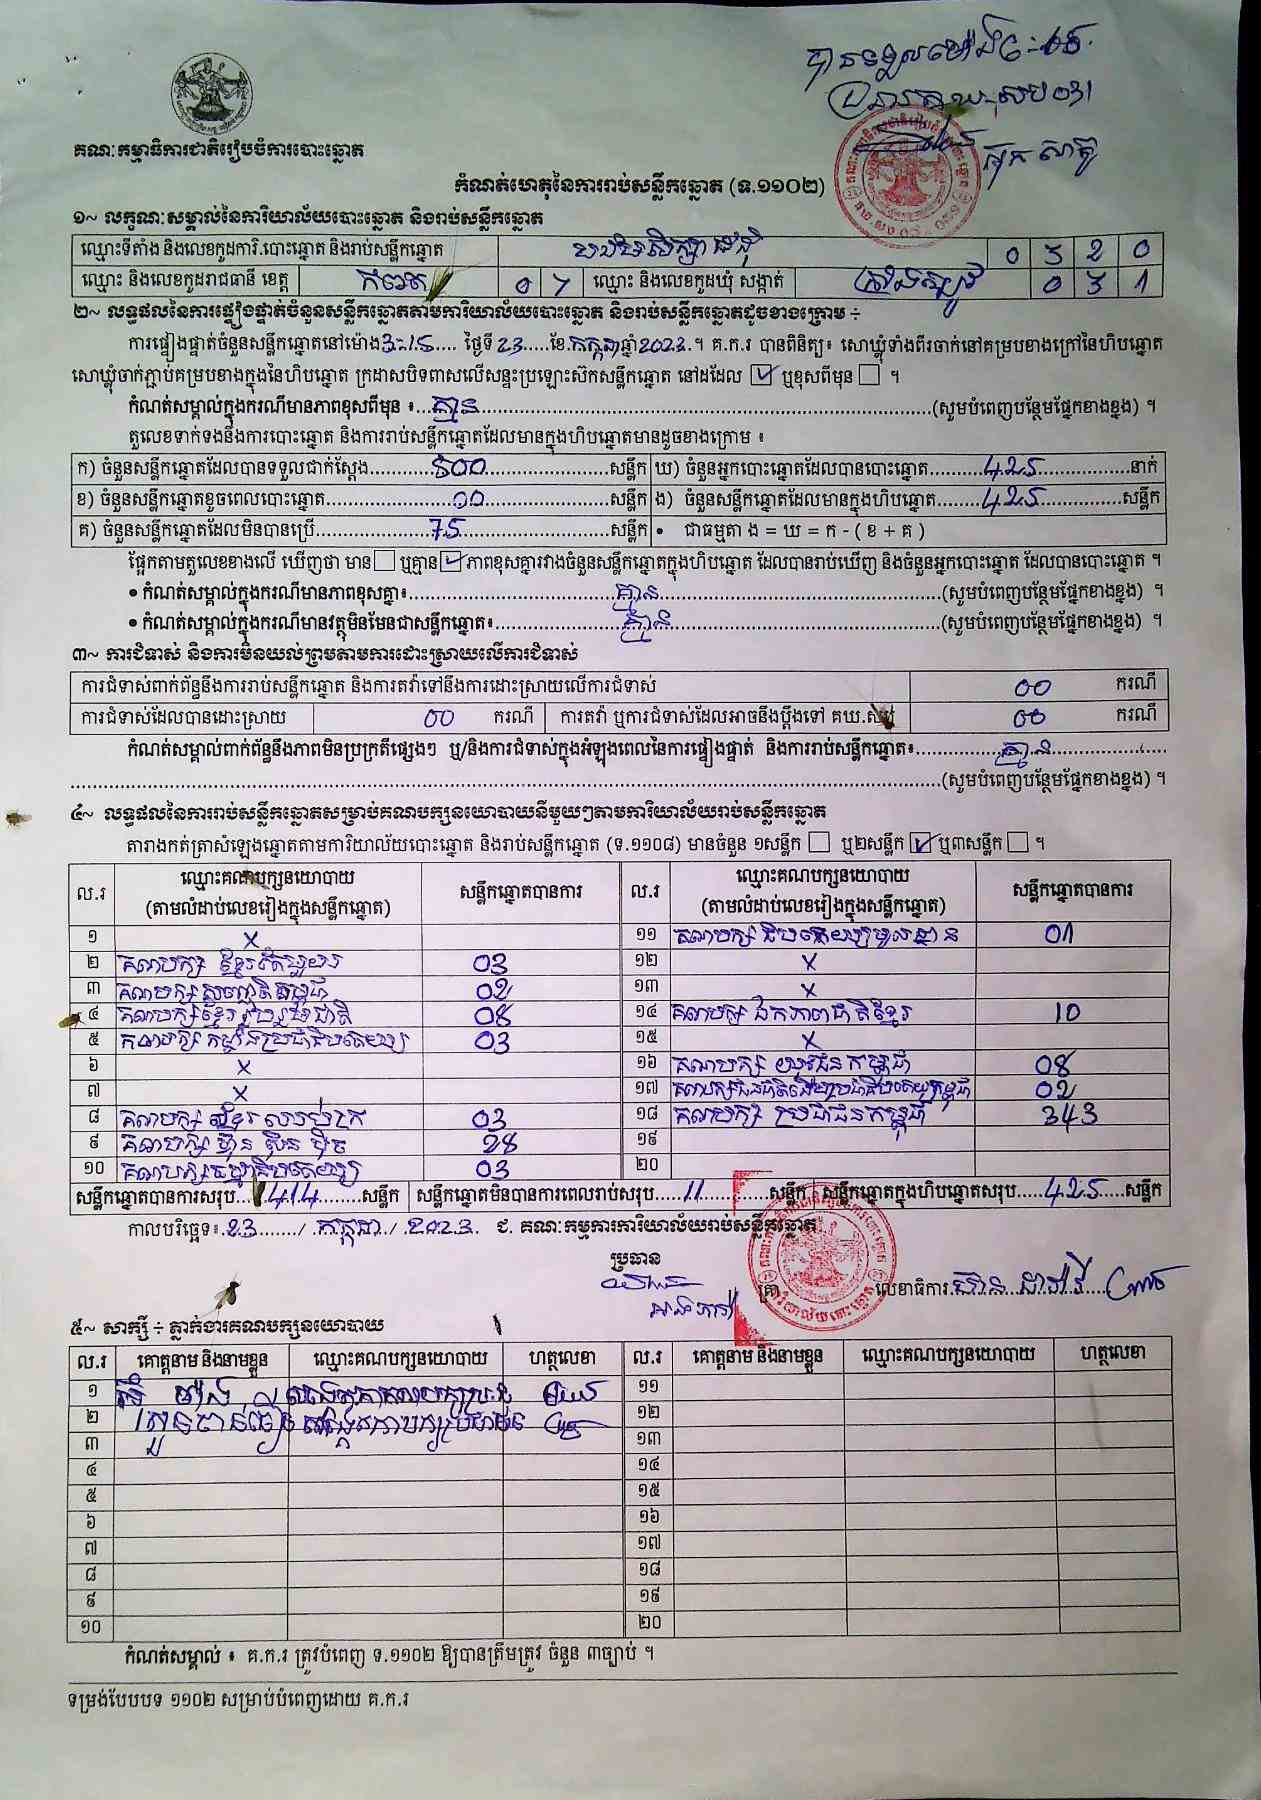 គណៈកម្មាធិការជាតិរៀបចំការបោះឆ្នោត
កំណត់ហេតុនៃការរាប់សន្លឹកឆ្នោត (ទ.១១០២)
១~ លក្ខណៈសម្គាល់នៃការិយាល័យបោះឆ្នោត និងរាប់សន្លឹកឆ្នោត
ឈ្មោះទីតាំង និងលេខកូដការិ.បោះឆ្នោត និងរាប់សន្លឹកឆ្នោត 0 3 2 0
ឈ្មោះ និងលេខកូដរាជធានី ខេត្ត កំពត 0 7 ឈ្មោះ និងលេខកូដឃុំ សង្កាត់ 0 3 1
២~ លទ្ធផលនៃការផ្ទៀងផ្ទាត់ចំនួនសន្លឹកឆ្នោតតាមការិយាល័យបោះឆ្នោត និងរាប់សន្លឹកឆ្នោតដូចខាងក្រោម ÷
ការផ្ទៀងផ្ទាត់ចំនួនសន្លឹកឆ្នោតនៅម៉ោង 3-15 ថ្ងៃទី 23 ខែ កក្កដា ឆ្នាំ 2023 ។ គ.ក.រ បានពិនិត្យ៖ សោឃ្លុំទាំងពីរចាក់នៅគម្របខាងក្រៅនៃហិបឆ្នោត
សោឃ្លុំចាក់ភ្ជាប់គម្របខាងក្នុងនៃហិបឆ្នោត ក្រដាសបិទពាសលើសន្ទះប្រឡោះស៊កសន្លឹកឆ្នោត នៅដដែល ✓ ឬខុសពីមុន ។
កំណត់សម្គាល់ក្នុងករណីមានភាពខុសពីមុន ៖ គ្មាន (សូមបំពេញបន្ថែមផ្នែកខាងខ្នង) ។
តួលេខទាក់ទងនឹងការបោះឆ្នោត និងការរាប់សន្លឹកឆ្នោតដែលមានក្នុងហិបឆ្នោតមានដូចខាងក្រោម ៖
ក) ចំនួនសន្លឹកឆ្នោតដែលបានទទួលជាក់ស្តែង 500 សន្លឹក ឃ) ចំនួនអ្នកបោះឆ្នោតដែលបានបោះឆ្នោត 425 នាក់
ខ) ចំនួនសន្លឹកឆ្នោតខូចពេលបោះឆ្នោត 00 សន្លឹក ង) ចំនួនសន្លឹកឆ្នោតដែលមានក្នុងហិបឆ្នោត 425 សន្លឹក
គ) ចំនួនសន្លឹកឆ្នោតដែលមិនបានប្រើ 75 សន្លឹក • ជាធម្មតា ង = ឃ = ក - ( ខ + គ )
ផ្អែកតាមតួលេខខាងលើ ឃើញថា មាន ឬគ្មាន ✓ ភាពខុសគ្នារវាងចំនួនសន្លឹកឆ្នោតក្នុងហិបឆ្នោត ដែលបានរាប់ឃើញ និងចំនួនអ្នកបោះឆ្នោត ដែលបានបោះឆ្នោត ។
• កំណត់សម្គាល់ក្នុងករណីមានភាពខុសគ្នា៖ គ្មាន (សូមបំពេញបន្ថែមផ្នែកខាងខ្នង) ។
• កំណត់សម្គាល់ក្នុងករណីមានវត្ថុមិនមែនជាសន្លឹកឆ្នោត៖ គ្មាន (សូមបំពេញបន្ថែមផ្នែកខាងខ្នង) ។
៣~ ការជំទាស់ និងការមិនយល់ព្រមតាមការដោះស្រាយលើការជំទាស់
ការជំទាស់ពាក់ព័ន្ធនឹងការរាប់សន្លឹកឆ្នោត និងការតវ៉ាទៅនឹងការដោះស្រាយលើការជំទាស់ 00 ករណី
ការជំទាស់ដែលបានដោះស្រាយ 00 ករណី ការតវ៉ា ឬការជំទាស់ដែលអាចនឹងប្តឹងទៅ គឃ.សប 00 ករណី
កំណត់សម្គាល់ពាក់ព័ន្ធនឹងភាពមិនប្រក្រតីផ្សេងៗ ឬ/និងការជំទាស់ក្នុងអំឡុងពេលនៃការផ្ទៀងផ្ទាត់ និងការរាប់សន្លឹកឆ្នោត៖ គ្មាន
(សូមបំពេញបន្ថែមផ្នែកខាងខ្នង) ។
៤~ លទ្ធផលនៃការរាប់សន្លឹកឆ្នោតសម្រាប់គណបក្សនយោបាយនីមួយៗតាមការិយាល័យរាប់សន្លឹកឆ្នោត
តារាងកត់ត្រាសំឡេងឆ្នោតតាមការិយាល័យបោះឆ្នោត និងរាប់សន្លឹកឆ្នោត (ទ.១១០៨) មានចំនួន ១សន្លឹក ឬ២សន្លឹក ✓ ឬ៣សន្លឹក ។
ល.រ ឈ្មោះគណបក្សនយោបាយ (តាមលំដាប់លេខរៀងក្នុងសន្លឹកឆ្នោត) សន្លឹកឆ្នោតបានការ ល.រ ឈ្មោះគណបក្សនយោបាយ (តាមលំដាប់លេខរៀងក្នុងសន្លឹកឆ្នោត) សន្លឹកឆ្នោតបានការ
១ x ១១ គណបក្ស ជីបធិបតេយ្យមូលដ្ឋាន 01
២ គណបក្ស ខ្មែរតែមួយ 03 ១២ x
៣ គណបក្ស 02 ១៣ x
៤ គណបក្សខ្មែររួបរួមជាតិ 08 ១៤ គណបក្ស ឯកភាពជាតិខ្មែរ 10
៥ គណបក្ស កម្លាំងប្រជាធិបតេយ្យ 03 ១៥ x
៦ x ១៦ គណបក្ស យុវជនកម្ពុជា 08
៧ x ១៧ គណបក្សជនជាតិដើមប្រជាធិបតេយ្យកម្ពុជា 02
៨ គណបក្ស ខ្មែរ 03 ១៨ គណបក្ស ប្រជាជនកម្ពុជា 343
៩ គណបក្ស ហ៊្វុនស៊ិនប៉ិច 28 ១៩
១០ គណបក្សធម្មាធិបតេយ្យ 03 ២០
សន្លឹកឆ្នោតបានការសរុប 414 សន្លឹក សន្លឹកឆ្នោតមិនបានការពេលរាប់សរុប 11 សន្លឹក សន្លឹកឆ្នោតក្នុងហិបឆ្នោតសរុប 425 សន្លឹក
កាលបរិច្ឆេទ៖ 23 / កក្កដា / 2023 ជ. គណៈកម្មការការិយាល័យរាប់សន្លឹកឆ្នោត
ប្រធាន
លេខាធិការ
៥~ សាក្សី ÷ ភ្នាក់ងារគណបក្សនយោបាយ
ល.រ គោត្តនាម និងនាមខ្លួន ឈ្មោះគណបក្សនយោបាយ ហត្ថលេខា ល.រ គោត្តនាម និងនាមខ្លួន ឈ្មោះគណបក្សនយោបាយ ហត្ថលេខា
១ ១១
២ ១២
៣ ១៣
៤ ១៤
៥ ១៥
៦ ១៦
៧ ១៧
៨ ១៨
៩ ១៩
១០ ២០
កំណត់សម្គាល់ ៖ គ.ក.រ ត្រូវបំពេញ ទ.១១០២ ឱ្យបានត្រឹមត្រូវ ចំនួន ៣ច្បាប់ ។
ទម្រង់បែបបទ ១១០២ សម្រាប់បំពេញដោយ គ.ក.រ